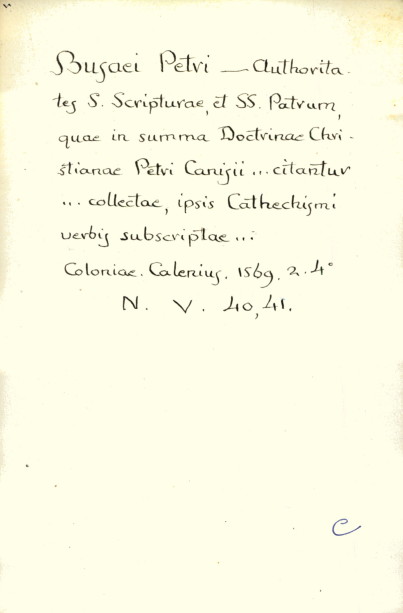 Busaei Petri — Authorita-
tes S. Scripturae, et SS. Patrum,
quae in summa Doctrinae Chri-
stianae Petri Canisii ... citantur
... collectae, ipsis Cathechismi
verbis subscriptae ...
Coloniae. Calenius. 1569. 2. 4°
N. V. 40, 41.
C